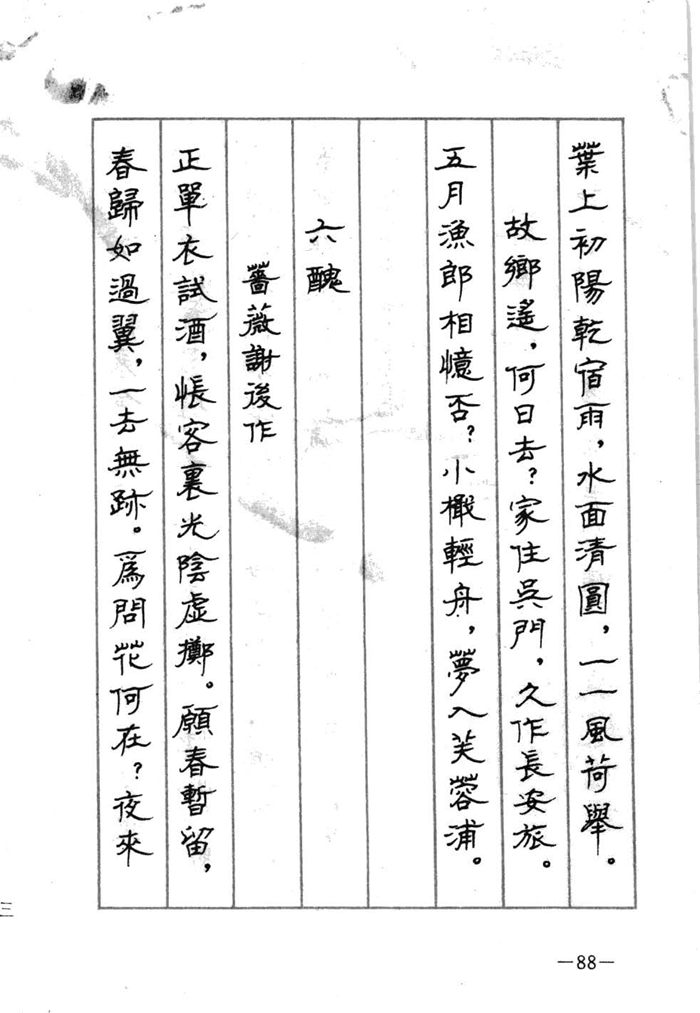 葉上初陽乾宿雨，水面清圓，一一風荷舉。
故鄉遙，何日去？家住吳門，久作長安旅。
五月漁郎相憶否？小檝輕舟，夢入芙蓉浦。
六醜
薔薇謝後作
正單衣試酒，悵客裏光陰虛擲。願春暫留，
春歸如過翼，一去無跡。爲問花何在？夜來
三
—88—